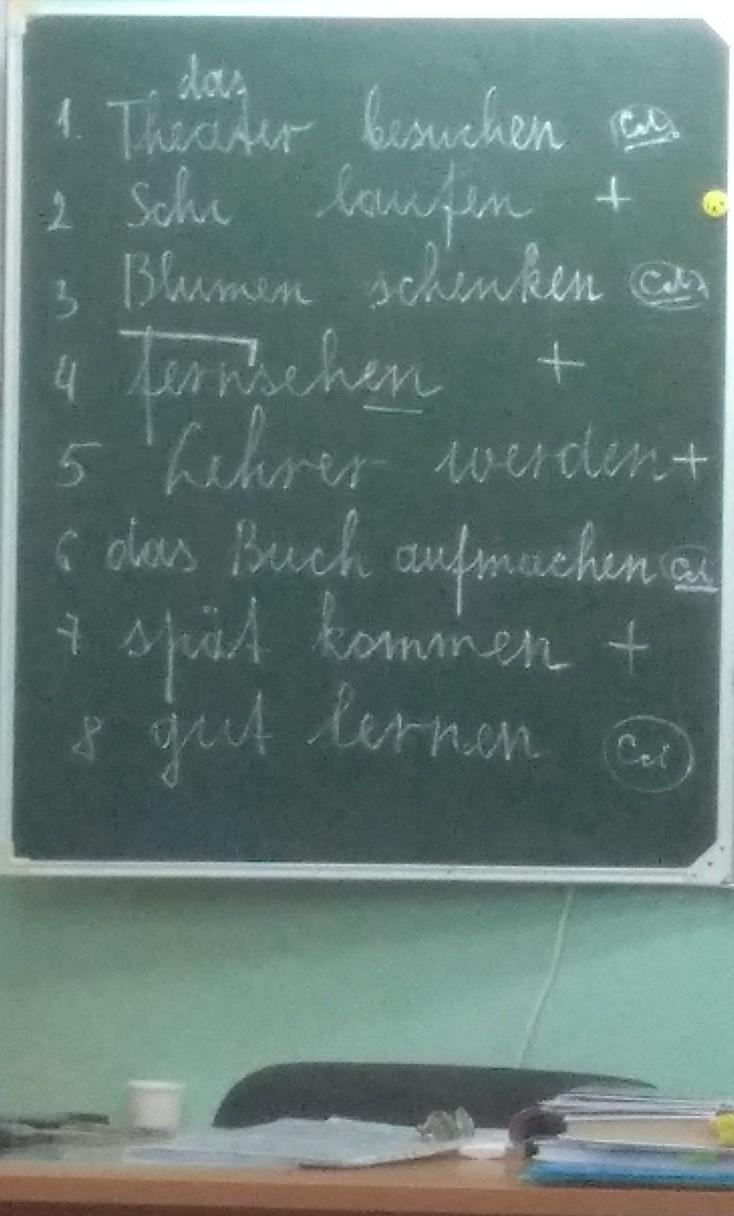 das
1. Theater besuchen
2 Schi laufen +
3 Blumen schenken
4 fernsehen +
5 Lehrer werden +
6 das Buch aufmachen
7 spät kommen +
8 gut lernen